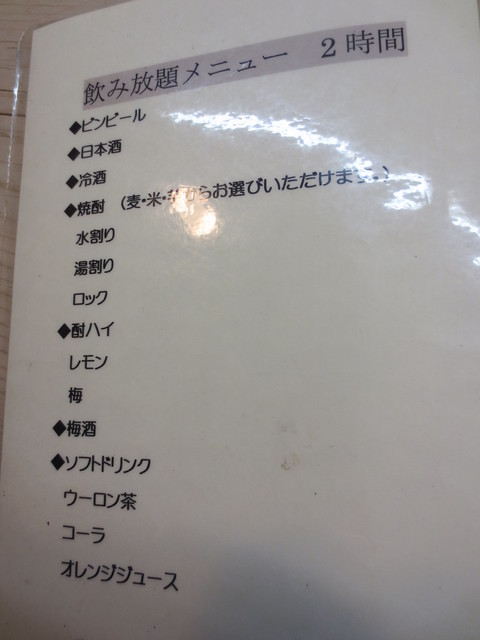 飲み放題メニュー　２時間
◆ビンビール
◆日本酒
◆冷酒
◆焼酎　（麦・米・芋からお選びいただけます。）
水割り
湯割り
ロック
◆酎ハイ
レモン
梅
◆梅酒
◆ソフトドリンク
ウーロン茶
コーラ
オレンジジュース